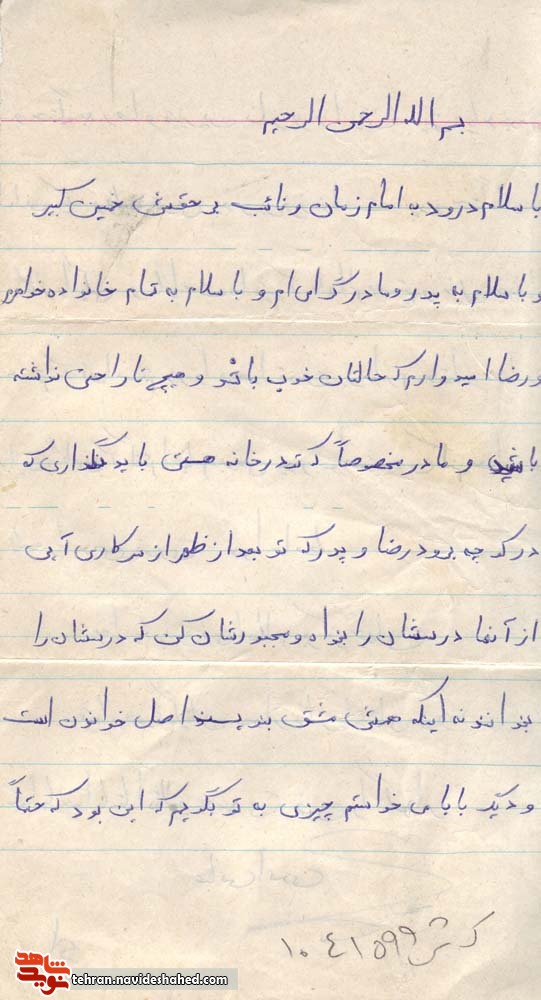 بسم الله الرحمن الرحیم
با سلام درود به امام زمان و نائب بر حقش خمین کبیر
و با سلام به پدر و مادر گرامی ام و با سلام به تمام خانواده خواهرم
و رضا امیدوارم که حالتان خوب باشد و هیچ ناراحتی نداشته
باشید و مادر مخصوصاً که تو در خانه هستی باید نگذاری که
در کوچه برود رضا و پدر که تو بعد از ظهر از سر کاری آیی
از آنها درسشان را بخواه و مجبورشان کن که درسشان را
بخوانند نه اینکه همش مشق بنویسند اصل خواندن است
و دیگر بابا می خواستم چیزی به تو بگویم که این بود که حتماً
۱۰۴۱۵۹۹
شاهد
نوید
tehran.navideshahed.com